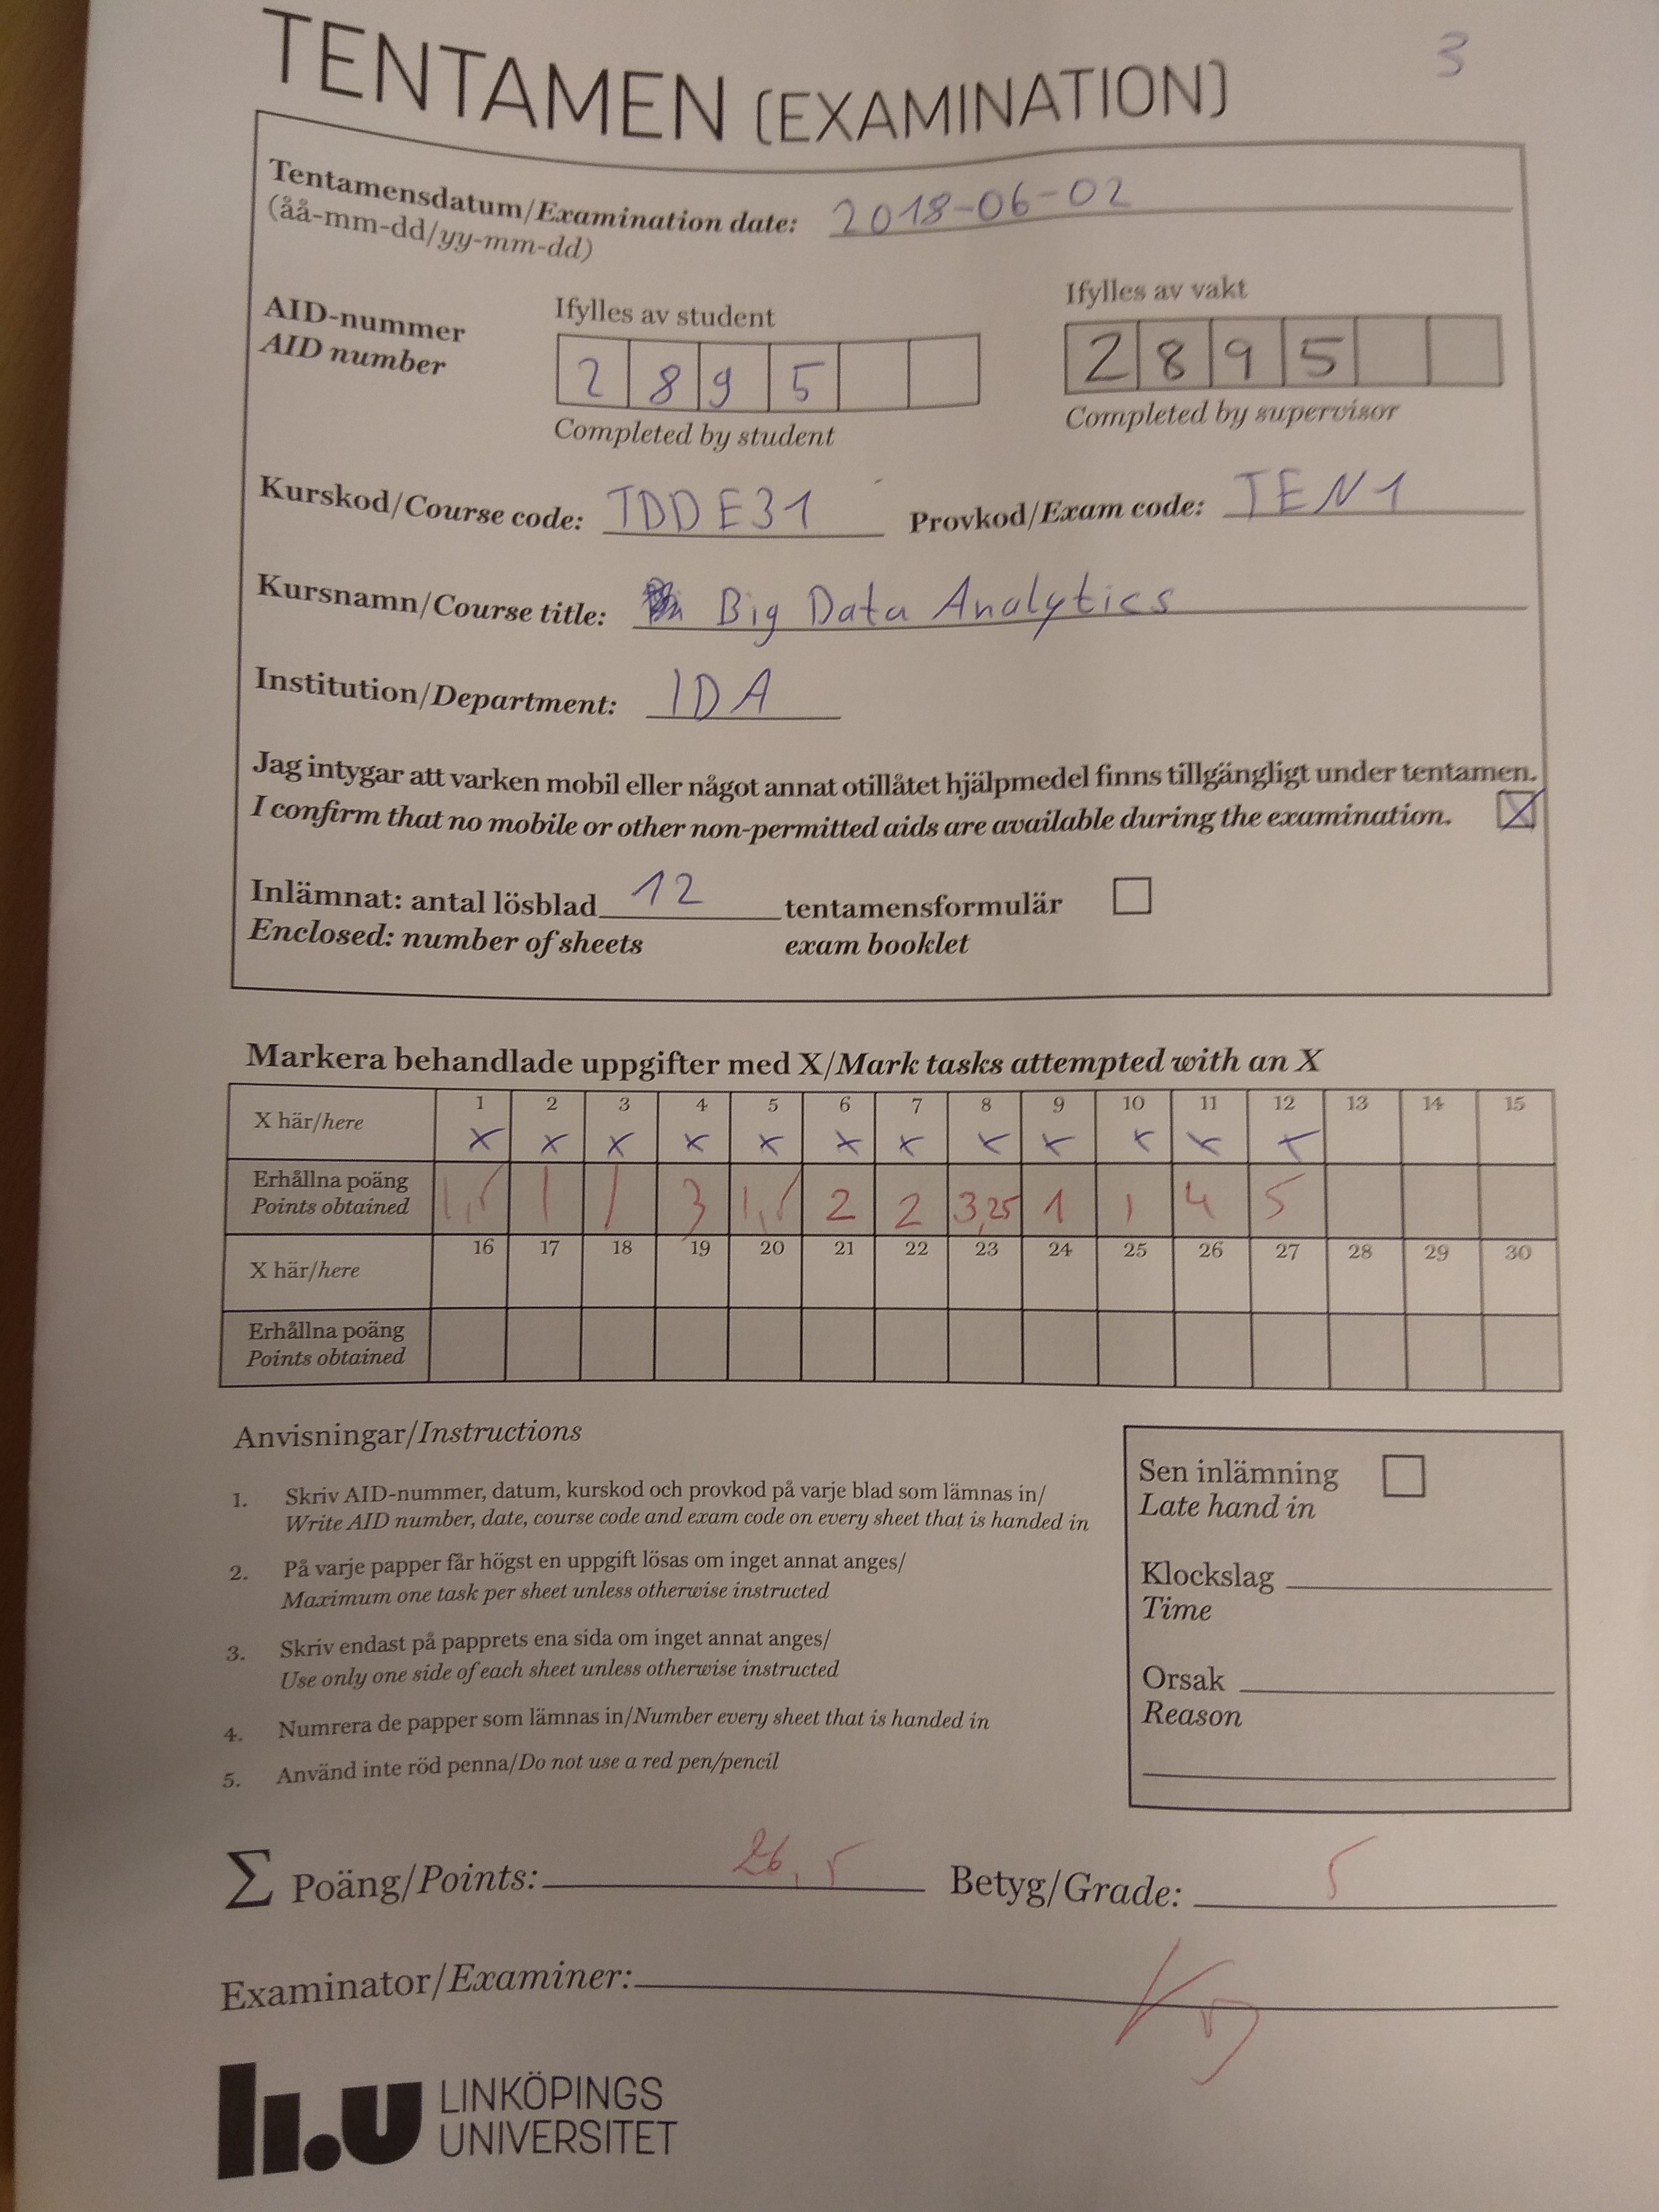 TENTAMEN (EXAMINATION)
3
Tentamensdatum/Examination date: 2018-06-02
(åå-mm-dd/yy-mm-dd)
AID-nummer
AID number
Ifylles av student
2 8 9 5
Completed by student
Ifylles av vakt
2 8 9 5
Completed by supervisor
Kurskod/Course code: TDDE31 Provkod/Exam code: TEN1
Kursnamn/Course title: Big Data Analytics
Institution/Department: IDA
Jag intygar att varken mobil eller något annat otillåtet hjälpmedel finns tillgängligt under tentamen.
I confirm that no mobile or other non-permitted aids are available during the examination. X
Inlämnat: antal lösblad 12 tentamensformulär
Enclosed: number of sheets exam booklet
Markera behandlade uppgifter med X/Mark tasks attempted with an X
1 2 3 4 5 6 7 8 9 10 11 12 13 14 15
X här/here X X X X X X X X X X X X
Erhållna poäng
Points obtained 1,5 1 1 3 1,5 2 2 3,25 1 1 4 5
16 17 18 19 20 21 22 23 24 25 26 27 28 29 30
X här/here
Erhållna poäng
Points obtained
Anvisningar/Instructions
1. Skriv AID-nummer, datum, kurskod och provkod på varje blad som lämnas in/
Write AID number, date, course code and exam code on every sheet that is handed in
2. På varje papper får högst en uppgift lösas om inget annat anges/
Maximum one task per sheet unless otherwise instructed
3. Skriv endast på papprets ena sida om inget annat anges/
Use only one side of each sheet unless otherwise instructed
4. Numrera de papper som lämnas in/Number every sheet that is handed in
5. Använd inte röd penna/Do not use a red pen/pencil
Sen inlämning
Late hand in
Klockslag
Time
Orsak
Reason
Σ Poäng/Points: 26,5 Betyg/Grade: 5
Examinator/Examiner:
li.u LINKÖPINGS
UNIVERSITET